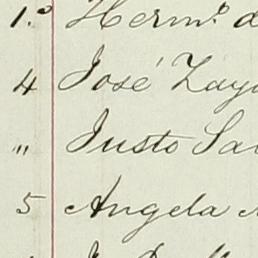 1.º Herm.º
4 José Zay
„ Justo Sa
5 Angela